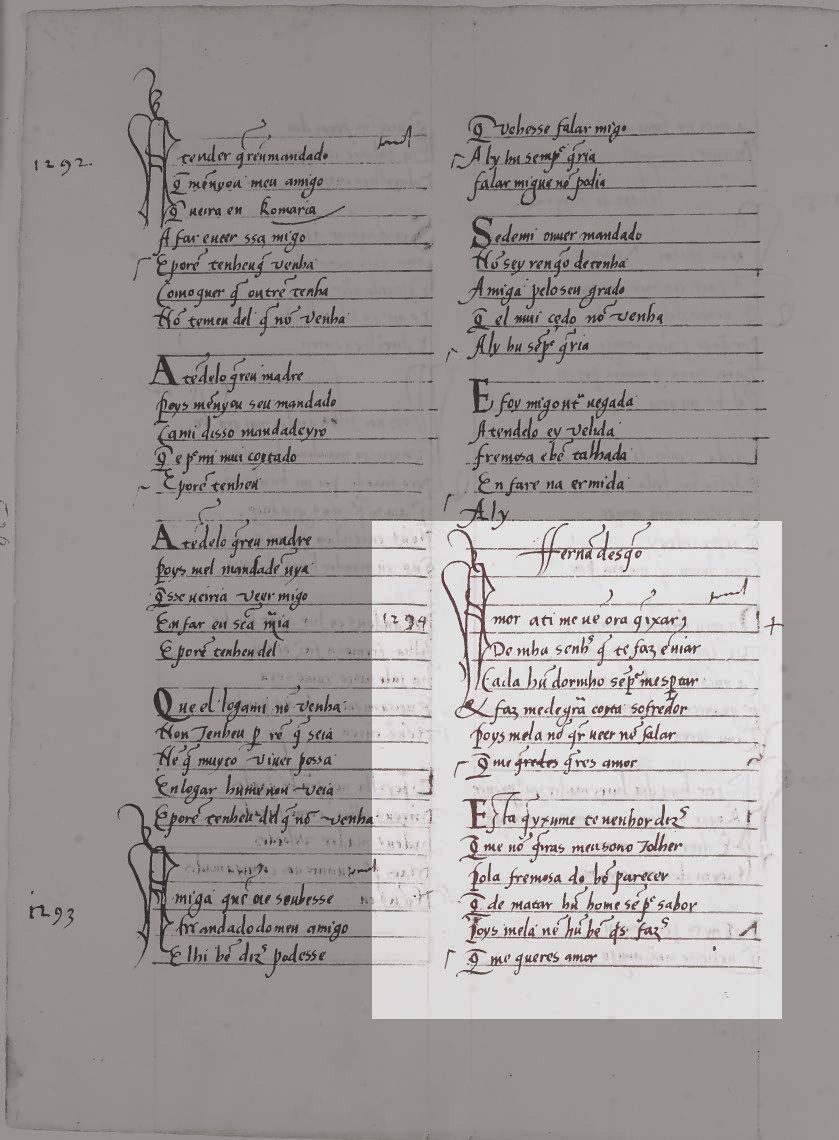 1292.
Atender q̃reu mandado
Q̃ mẽuyou meu amigo
Q̃ ueira en Romaria
A far eueer ssa migo
E porẽ tenheu q̃ venha
Como quer q̃ outrẽ tenha
Nõ temeu del q̃ nõ venha
Atẽdelo q̃reu madre
Poys mẽuyou seu mandado
Ca mi disso mandadeyro
Q̃ e pʳ mi mui coytado
E porẽ tenheu
Atẽdelo q̃reu madre
Poys mel mandade uya
Q̃sse ueiria veer migo
En far eu scã mia
E porẽ tenheu del
Que el logami nõ venha
Non Tenheu p̃ rẽ q̃ seia
Nẽ q̃ muyto viuer possa
En logar hu me non veia
E porẽ tenheu del q̃ nõ venha
1293
Amiga quẽ oie soubesse
Mandado do meu amigo
E lhi bẽ diz̃ podesse
Q̃ vehesse falar migo
Aly hu semp̃ q̃ria
falar migue nõ podia
Sedemi ouuer mandado
Nõ sey ren q̃o detenha
Amiga pelo seu grado
Q̃ el mui çedo nõ venha
Aly hu sẽp̃ q̃ria
E foy migout̃ uegada
Atendelo ey velida
fremosa ebẽ talhada
En fare na ermida
Aly
ffernã desq̃o
1294
Amor a ti me uẽ ora q̃ixar
De mha senhʳ q̃ te faz ẽuiar
Cada hu dormho sẽp̃ mespertar
E faz mede grã coyta sofredor
Poys mela nõ q̃r ueer nẽ falar
Q̃ me q̃res amor
Esta q̃yxume te uenhor diz̃
Q̃ me nõ q̃iras meu sono Tolher
Pola fremosa do bõ parecer
Q̃ de matar hu home sẽp̃ sabor
Poys mela nẽ hu bẽ q̃s faz̃
Q̃ me queres amor